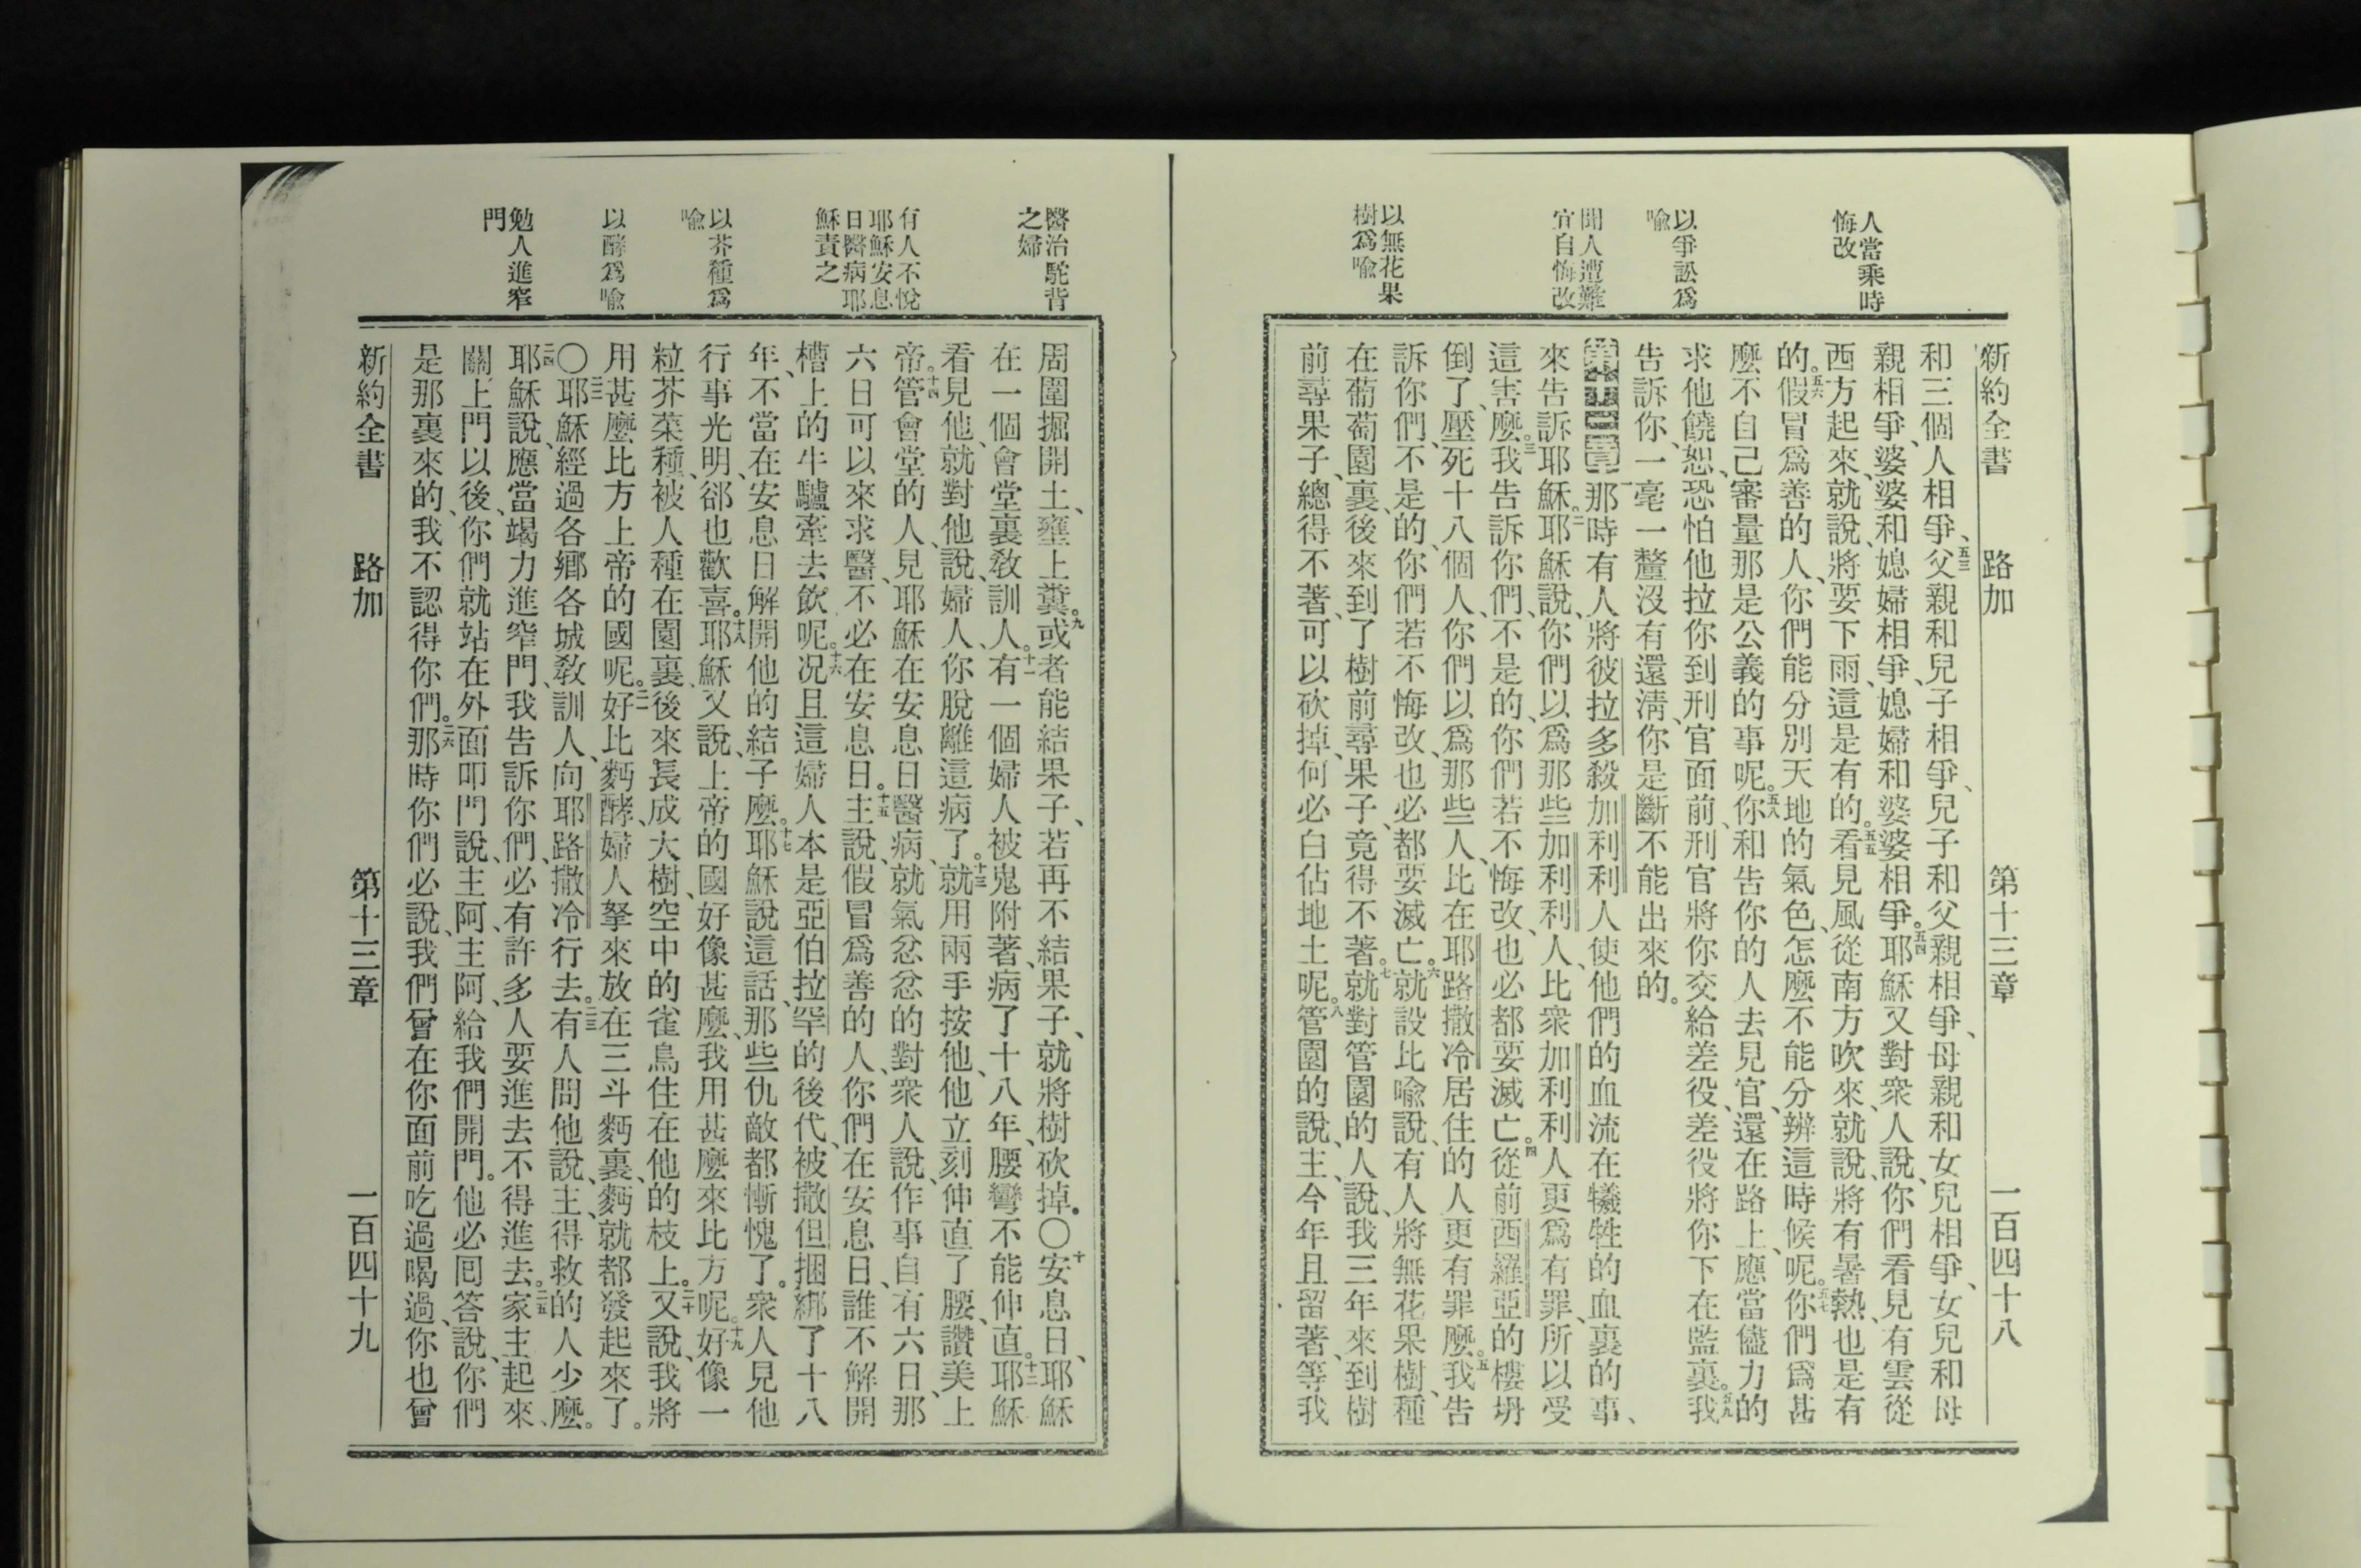 人當乘時
悔改
以爭訟爲
喩
聞人遭難
宜自悔改
以無花果
樹爲喩
新約全書 路加 第十三章 一百四十八
和三個人相爭、五三父親和兒子相爭、兒子和父親相爭、母親和女兒相爭、女兒和母
親相爭、婆婆和媳婦相爭、媳婦和婆婆相爭。五四耶穌又對衆人說、你們看見有雲從
西方起來、就說、將要下雨、這是有的。五五看見風從南方吹來、就說、將有暑熱、也是有
的。五六假冒爲善的人、你們能分別天地的氣色、怎麼不能分辨這時候呢。五七你們爲甚
麼不自己審量那是公義的事呢。五八你和告你的人去見官、還在路上、應當儘力的
求他饒恕、恐怕他拉你到刑官面前、刑官將你交給差役、差役將你下在監裏。五九我
告訴你、一毫一釐沒有還淸、你是斷不能出來的。
第十三章 一那時有人將彼拉多殺加利利人使他們的血流在犧牲的血裏的事、
來告訴耶穌。二耶穌說、你們以爲那些加利利人、比衆加利利人更爲有罪、所以受
這害麼。三我告訴你們、不是的、你們若不悔改、也必都要滅亡。四從前西羅亞的樓坍
倒了、壓死十八個人、你們以爲那些人、比在耶路撒冷居住的人更有罪麼。五我告
訴你們、不是的、你們若不悔改、也必都要滅亡。六就設比喩說、有人將無花果樹、種
在葡萄園裏、後來到了樹前尋果子、竟得不著。七就對管園的人說、我三年來到樹
前尋果子、總得不著、可以砍掉、何必白佔地土呢。八管園的說、主、今年且留著、等我
醫治駝背
之婦
有人不悅
耶穌安息
日醫病耶
穌責之
以芥種爲
喩
以酵爲喩
勉人進窄
門
周圍掘開土、壅上糞。九或者能結果子、若再不結果子、就將樹砍掉。〇十安息日、耶穌
在一個會堂裏敎訓人。十一有一個婦人被鬼附著、病了十八年、腰彎不能伸直。十二耶穌
看見他、就對他說、婦人、你脫離這病了。十三就用兩手按他、他立刻伸直了腰、讚美上
帝。十四管會堂的人、見耶穌在安息日醫病、就氣忿忿的對衆人說、作事自有六日、那
六日可以來求醫、不必在安息日。十五主說、假冒爲善的人、你們在安息日、誰不解開
槽上的牛驢牽去飮呢。十六况且這婦人本是亞伯拉罕的後代、被撒但捆綁了十八
年、不當在安息日解開他的結子麼。十七耶穌說這話、那些仇敵都慚愧了。衆人見他
行事光明、郤也歡喜。十八耶穌又說、上帝的國好像甚麼、我用甚麼來比方呢。十九好像一
粒芥菜種、被人種在園裏、後來長成大樹、空中的雀鳥住在他的枝上。二十又說、我將
用甚麼比方上帝的國呢。二一好比麪酵、婦人拏來放在三斗麪裏、麪就都發起來了。
〇二二耶穌經過各鄉各城敎訓人、向耶路撒冷行去。二三有人問他說、主、得救的人少麼。
二四耶穌說、應當竭力進窄門、我告訴你們、必有許多人要進去不得進去。二五家主起來、
關上門以後、你們就站在外面叩門說、主阿、主阿、給我們開門。他必囘答說、你們
是那裏來的、我不認得你們。二六那時你們必說、我們曾在你面前吃過喝過、你也曾
新約全書 路加 第十三章 一百四十九